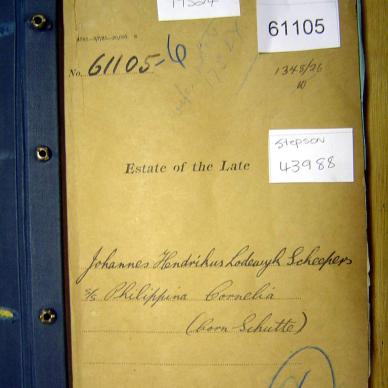 61105
No. 61105-6
1348/26
Stepson
43988
Estate of the Late
Johannes Hendrikus Lodewyk Scheepers
s/s Philippina Cornelia
(born Schutte)